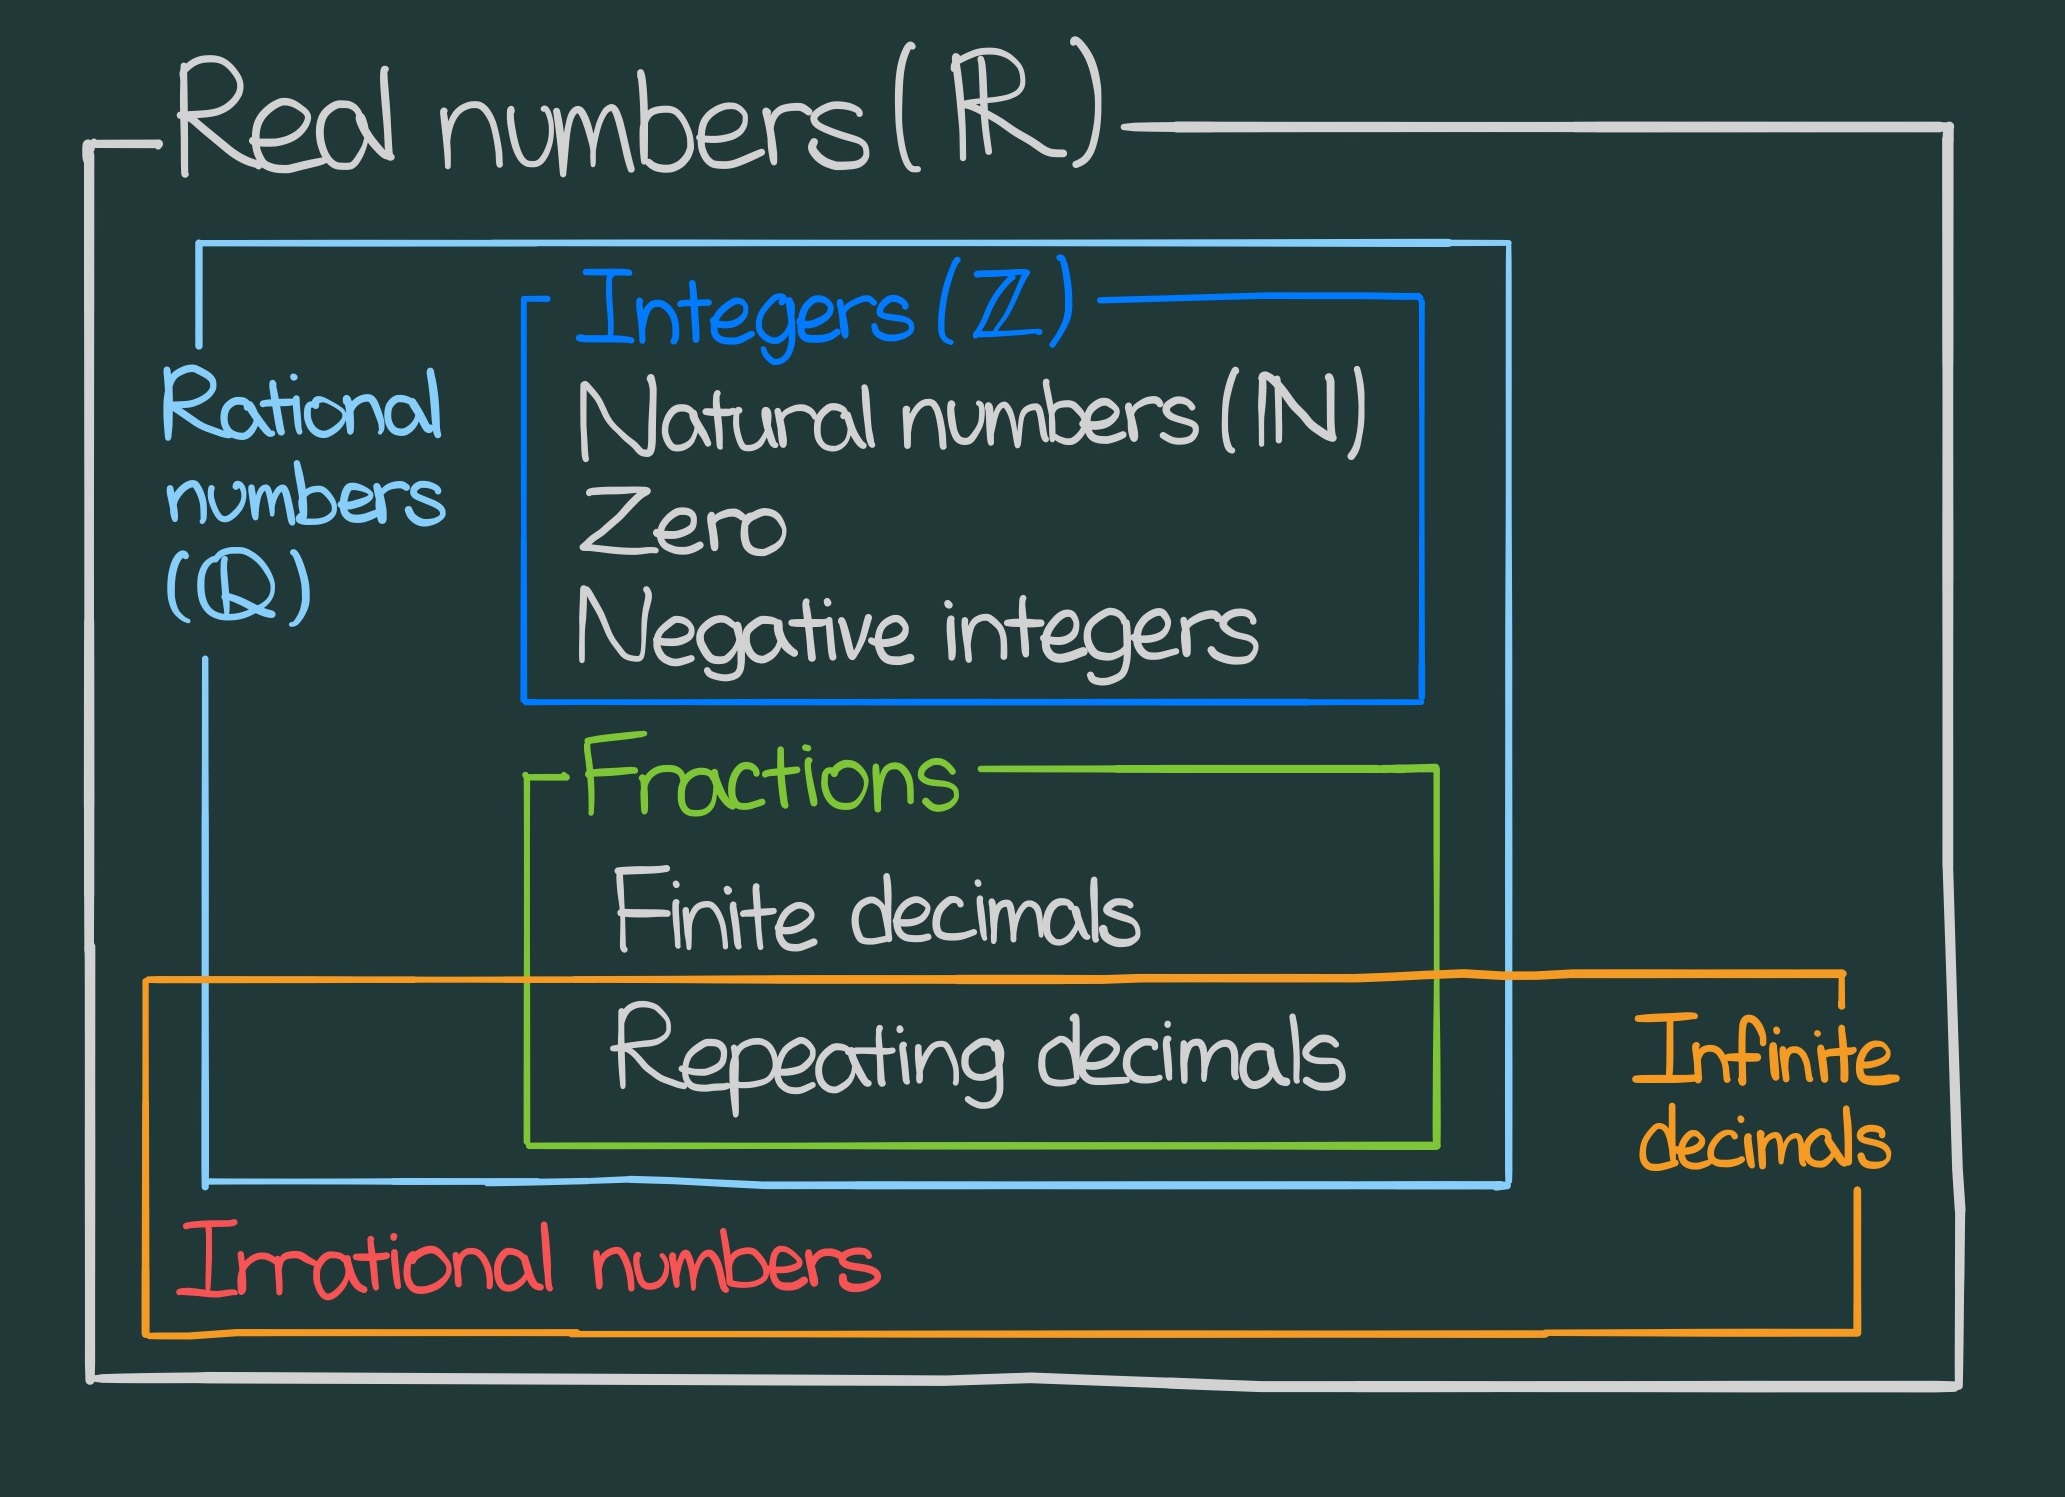 Real numbers (ℝ)
Integers (ℤ)
Rational
numbers
(ℚ)
Natural numbers (ℕ)
Zero
Negative integers
Fractions
Finite decimals
Repeating decimals
Infinite
decimals
Irrational numbers